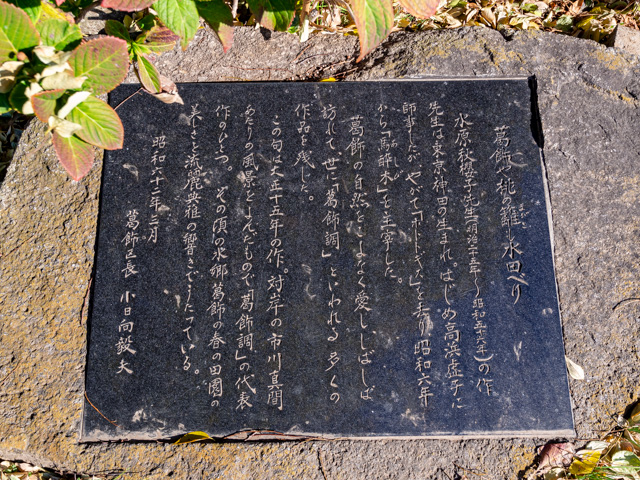 葛飾や桃の籬も水田べり
まがき
水原秋櫻子先生(明治二十五年~昭和五十六年)の作
先生は東京神田の生まれ、はじめ高浜虚子に
師事したが、やがて「ホトトギス」を去り昭和六年
から「馬醉木」を主宰した。
あしび
葛飾の自然をこよなく愛し、しばしば
訪れて、世に「葛飾調」といわれる多くの
作品を残した。
この句は大正十五年の作。対岸の市川真間
あたりの風景をよんだもので「葛飾調」の代表
作のひとつ。その頃の水郷葛飾の春の田園の
美しさと流麗典雅の響きがうたっている。
昭和六十一年三月
葛飾区長 小日向毅夫